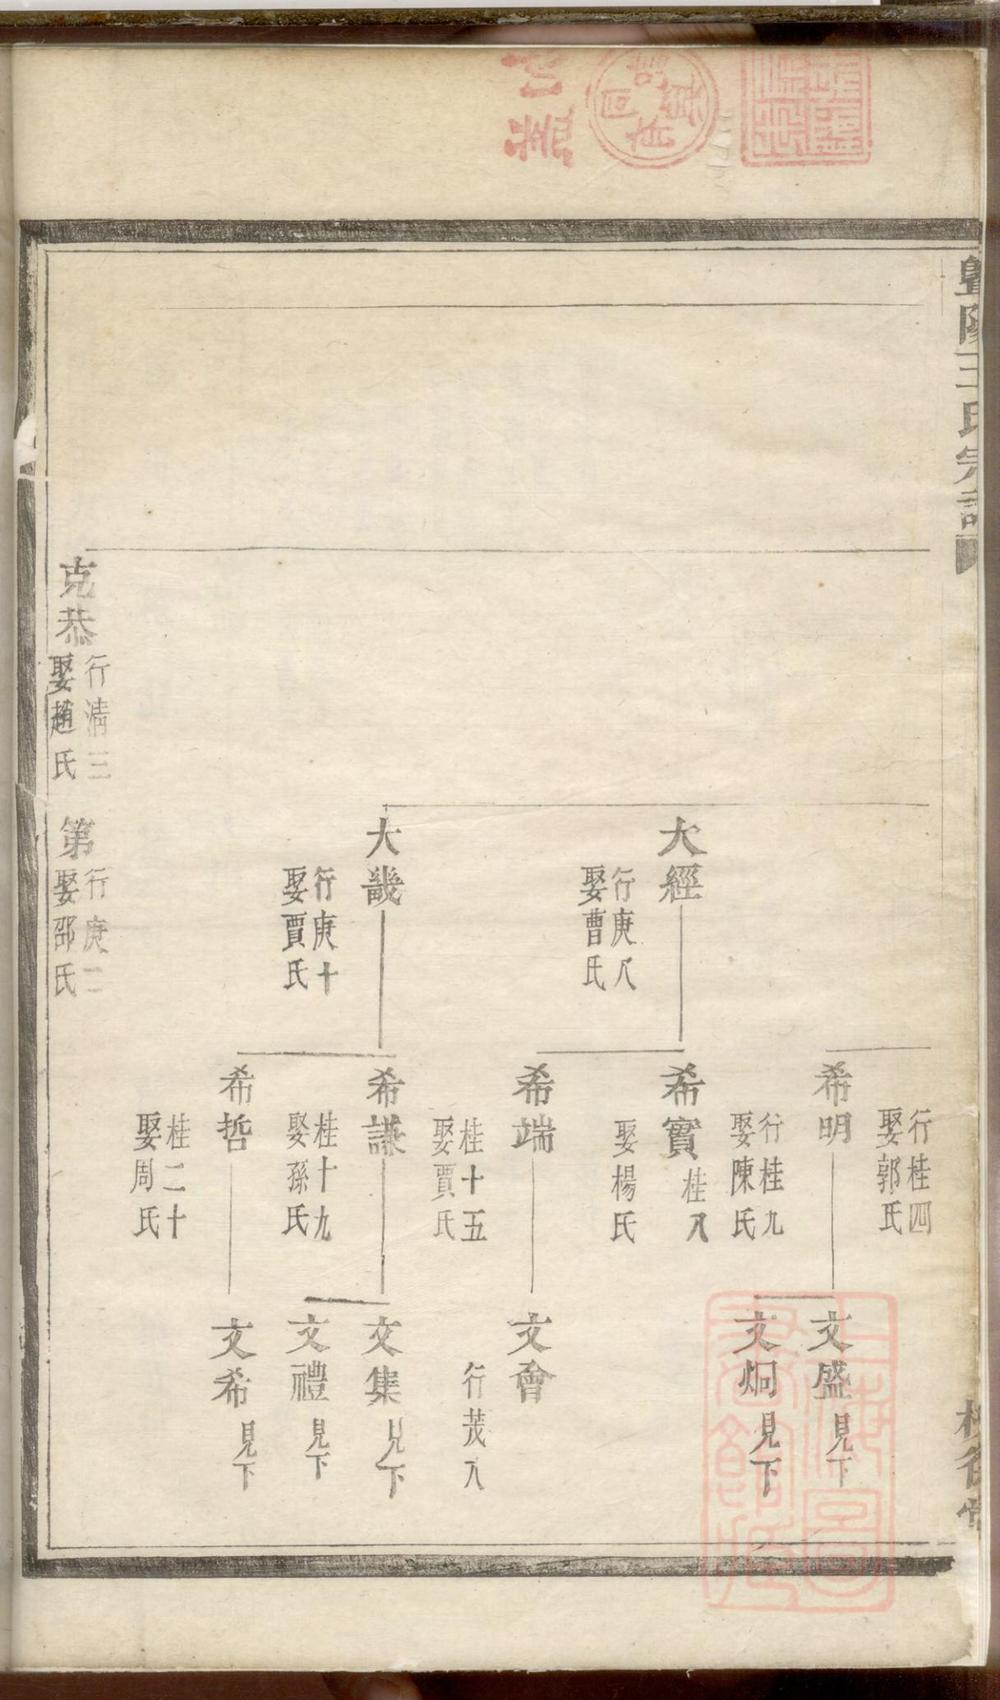 暨陽王氏宗譜
行桂四
娶郭氏
希明
行桂九
娶陳氏
文盛
見下
文炯
見下
大經
行庚八
娶曹氏
希實
桂八
娶楊氏
希端
桂十五
娶賈氏
文會
行茂八
大畿
行庚十
娶賈氏
希謙
桂十九
娶孫氏
文集
見下
文禮
見下
希哲
桂二十
娶周氏
文希
見下
克恭
行清三
娶趙氏
第
行庚二
娶邵氏
上海圖書館藏